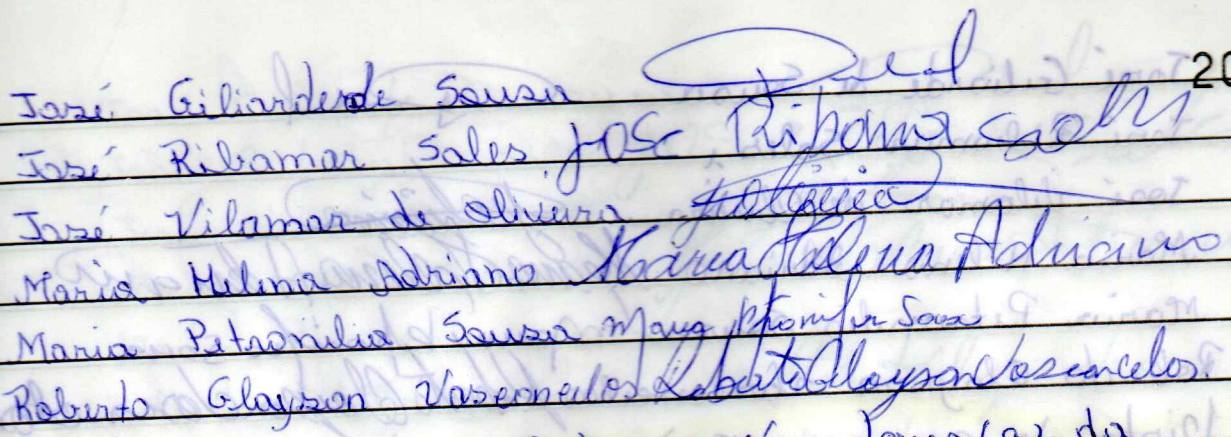 José Giliarde de Sousa 20
José Ribamar Sales José Ribama Sales
José Vilamar de Oliveira
Maria Helena Adriano Maria Helena Adriano
Maria Petronilia Sousa Sousa
Roberto Glayson Vasconcelos Roberto Glayson Vasconcelos.